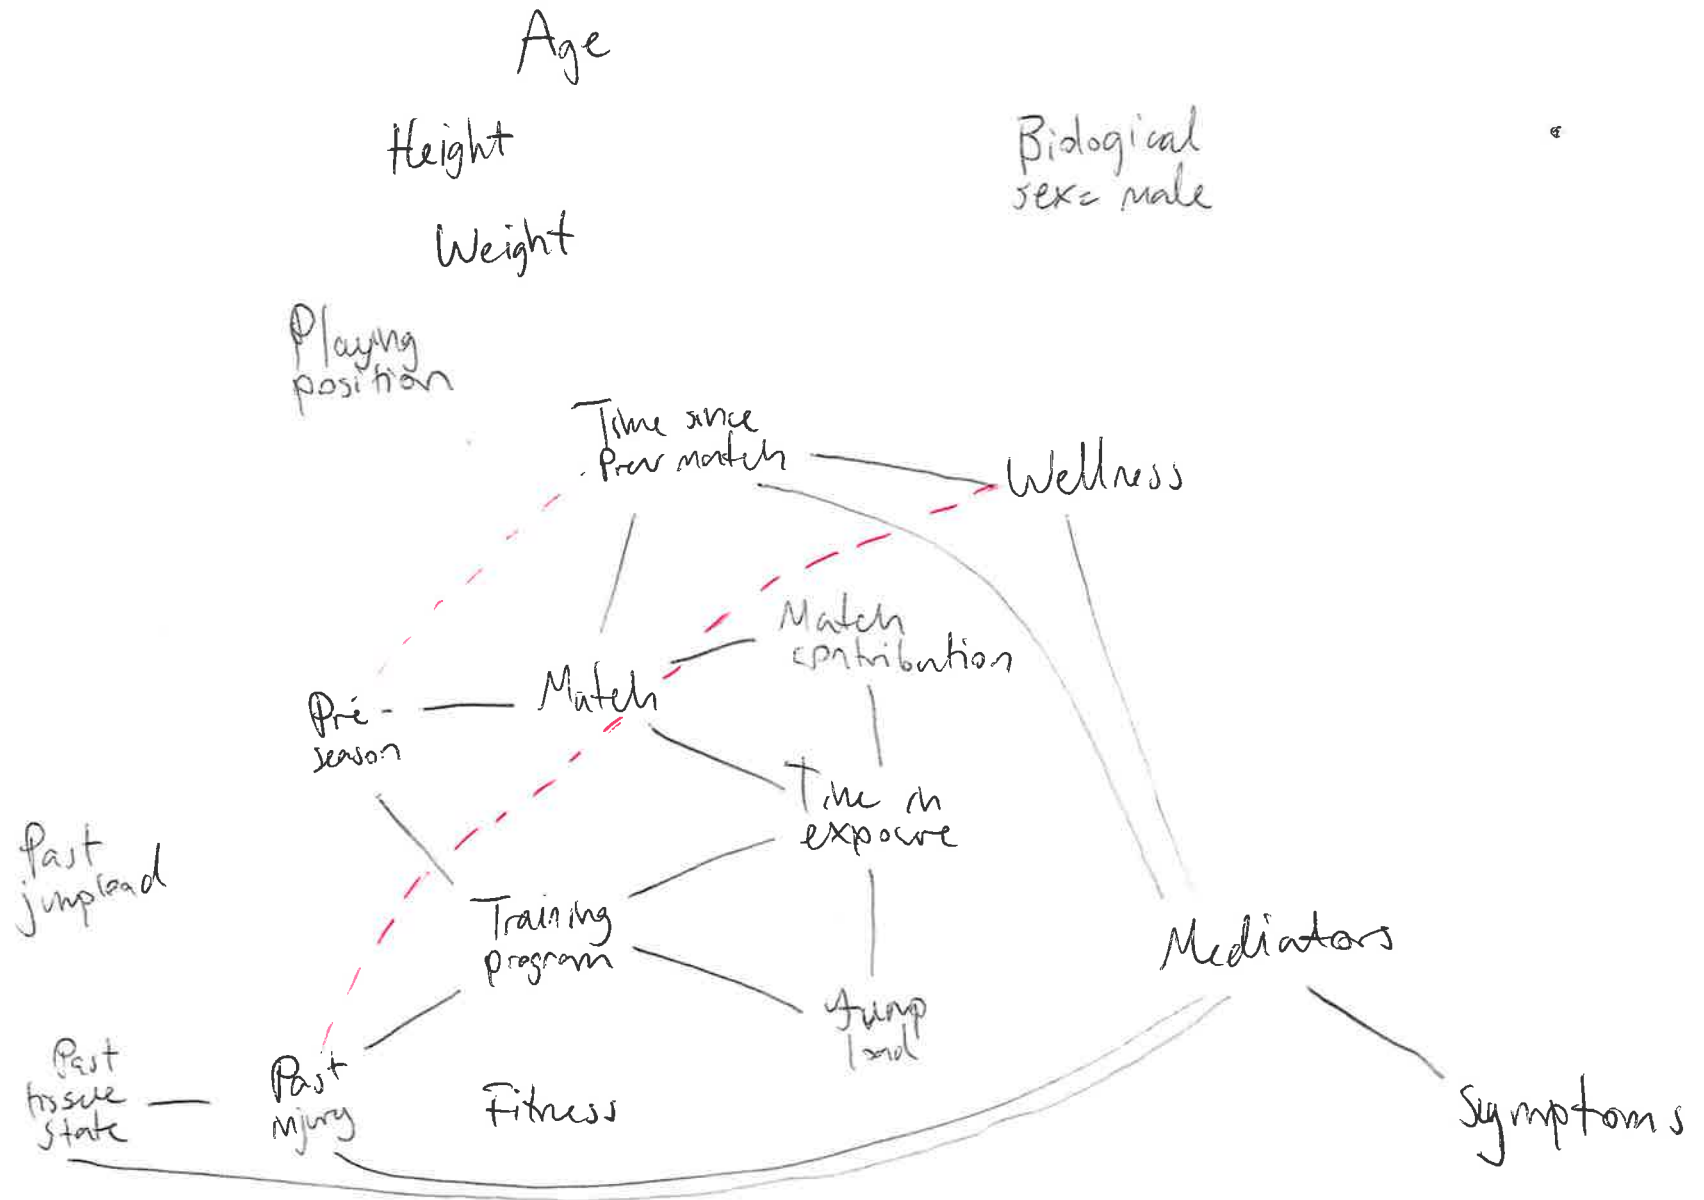 Age
Height
Biological
sex = male
Weight
Playing
position
Time since
Prev match
Wellness
Match
contribution
Match
Pre-
season
Time in
exposure
Past
jumpload
Training
program
Mediators
Jump
load
Past
tissue
state
Past
injury
Fitness
Symptoms